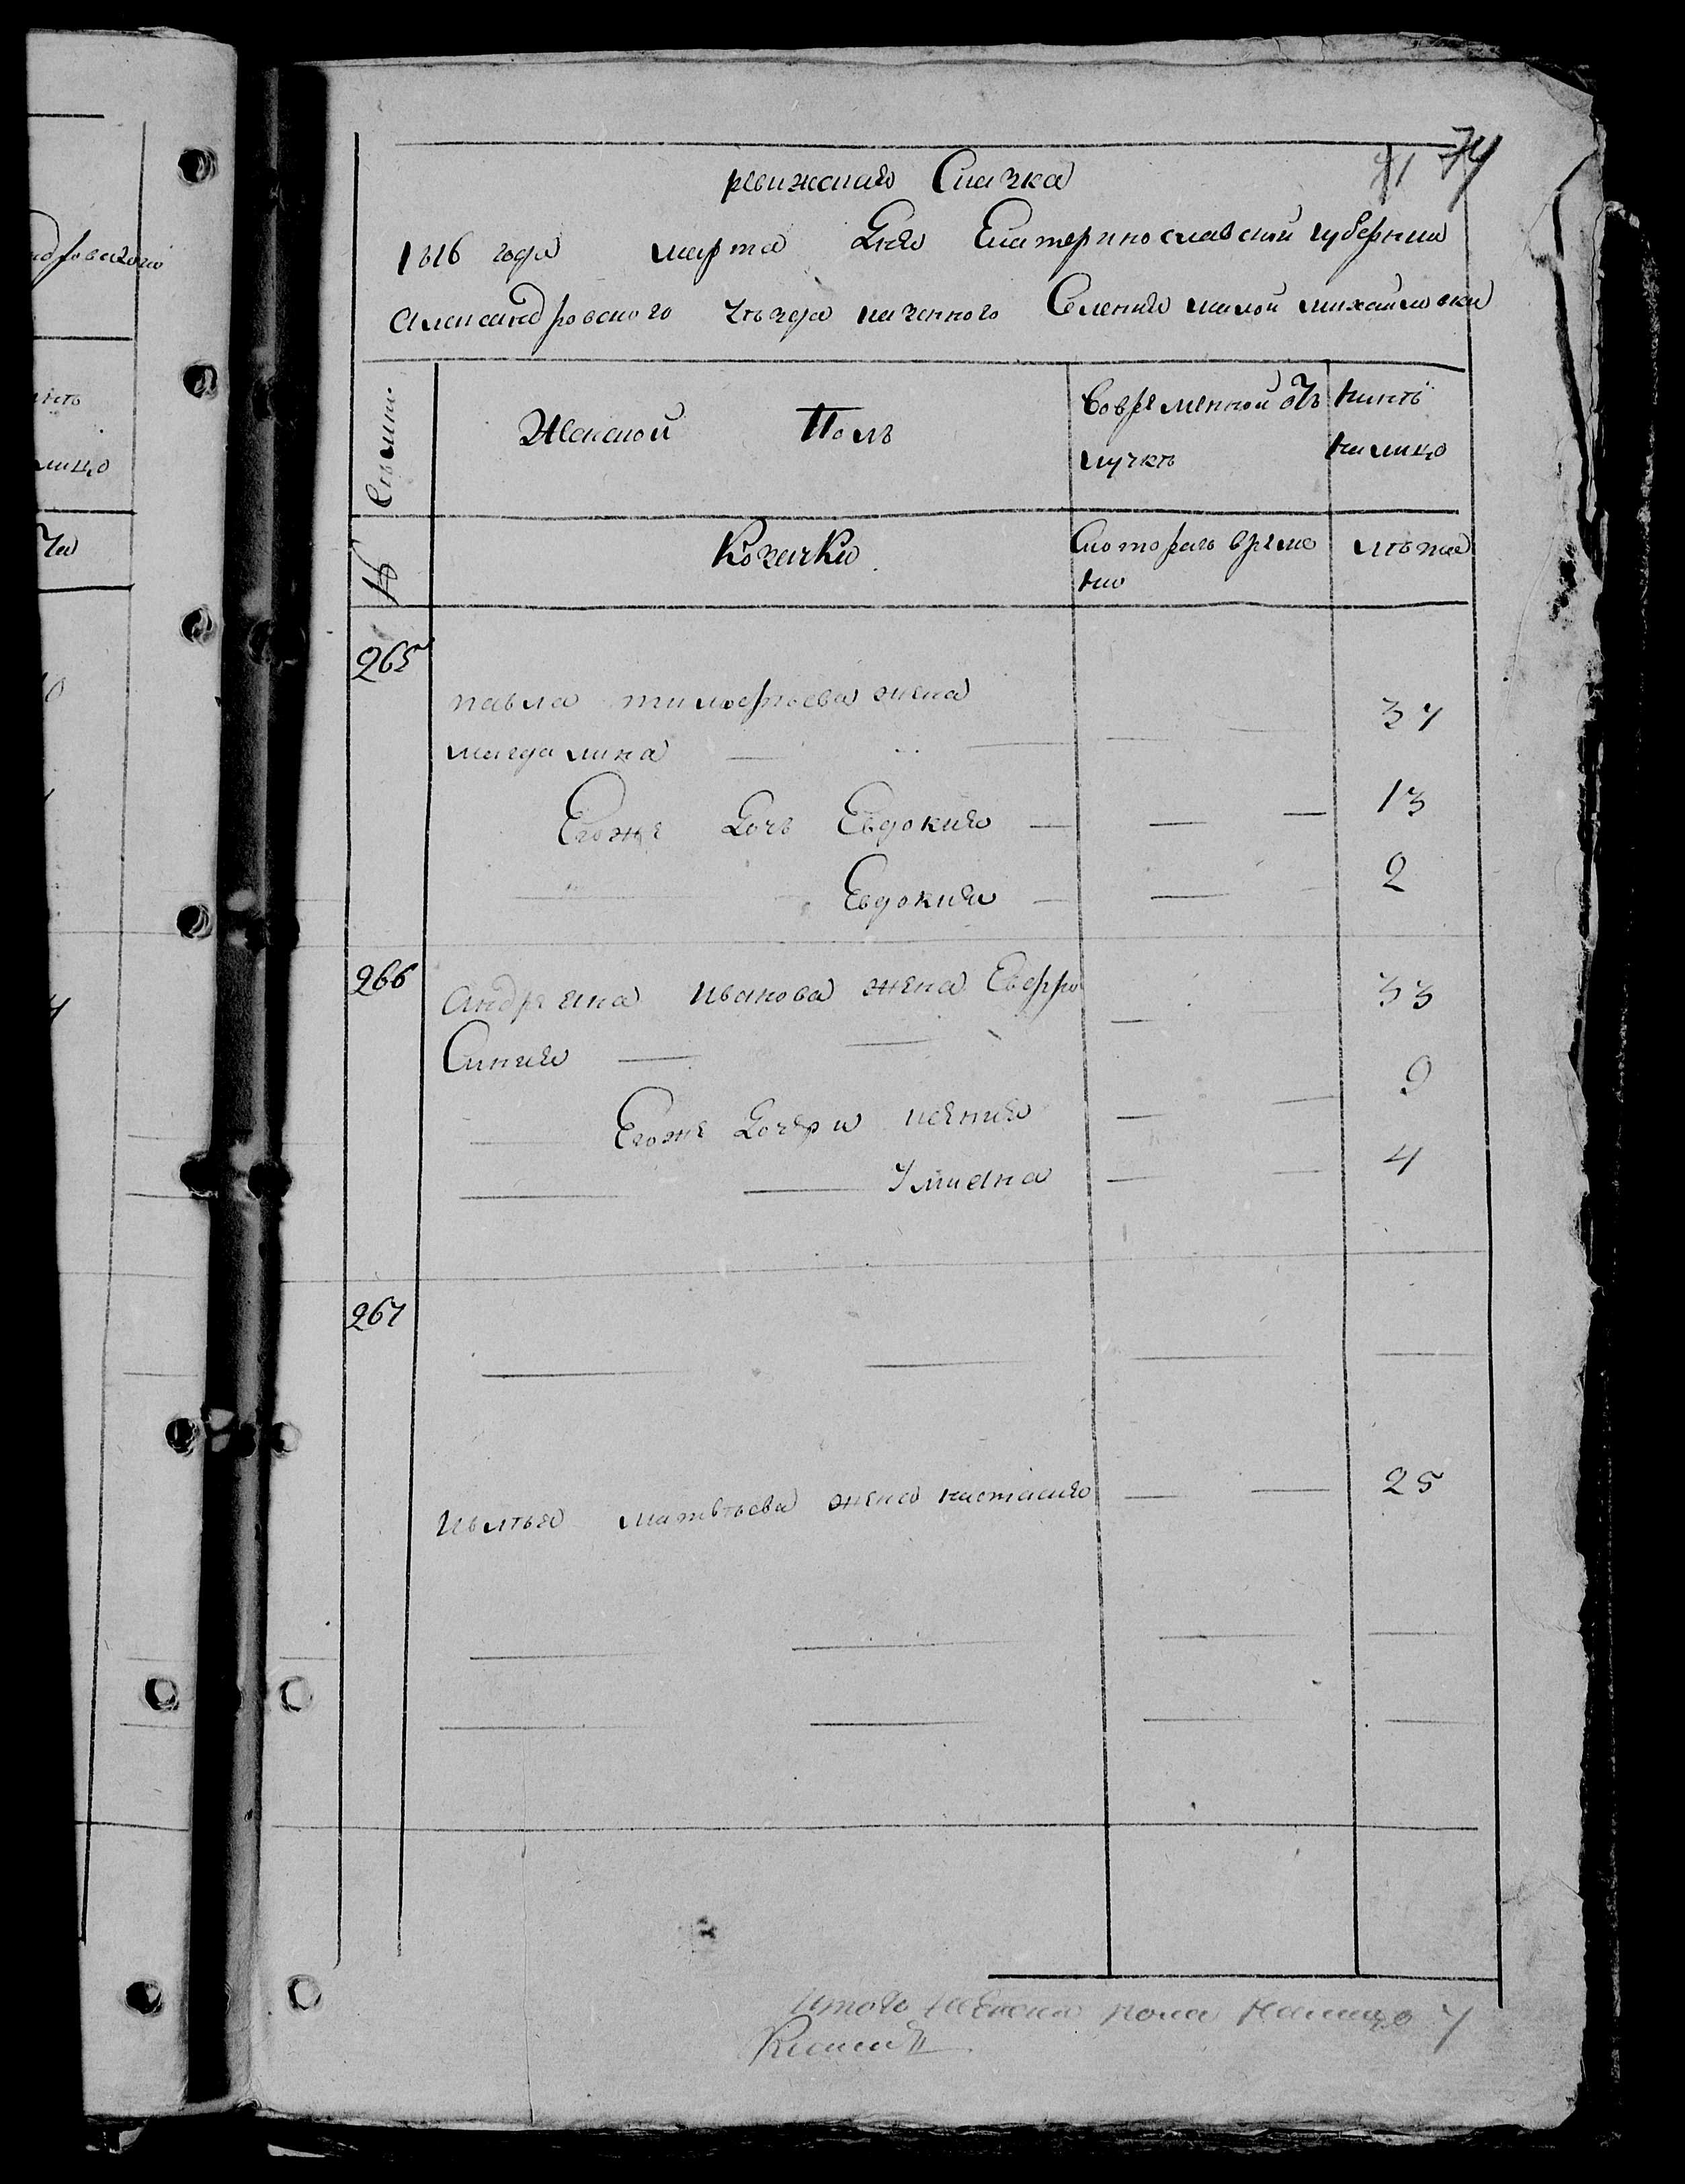 71 74
ревижская Скаска
1816 года марта Дня Екатеринославской губернии
Александровского уъзда казенного Селения малой михайловки
Семьи
Женской Полъ
Вовременной отъ
лучкѣ
нынѣ
на лицо
№
Козачки
Скоторого време
ни
лѣта
265
павла тимофѣева жена
магдалина
37
Егоже Дочь Евдокия 13
Евдокия 2
266
Андреяна иванова жена Евфро
Синия
33
Егоже Дочери ксения 9
Улияна 4
267
матвѣева жена настасия 25
итого женска пола налицо 7